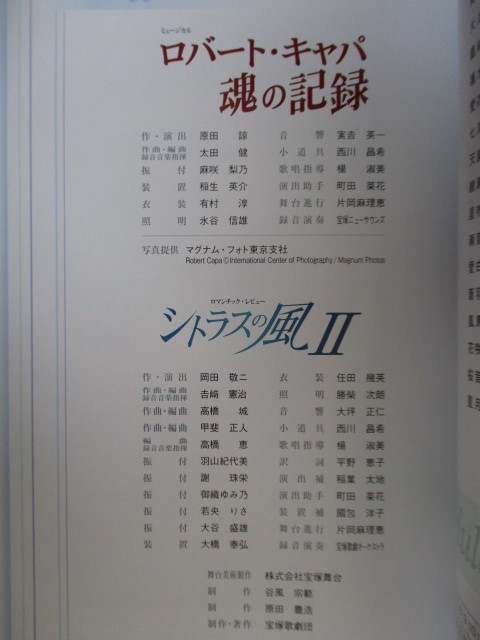 ミュージカル
ロバート・キャパ
魂の記録
作・演出 原田 諒 音響 実吉 英一
作曲・編曲 録音音楽指揮 太田 健 小道具 西川 昌希
振付 麻咲 梨乃 歌唱指導 楊 淑美
装置 稲生 英介 演出助手 町田 菜花
衣装 有村 淳 舞台進行 片岡麻理恵
照明 氷谷 信雄 録音演奏 宝塚ニューサウンズ
写真提供 マグナム・フォト東京支社
Robert Capa©International Center of Photography / Magnum Photos
ロマンチック・レビュー
シトラスの風II
作・演出 岡田 敬二 衣装 任田 幾英
作曲・編曲 録音音楽指揮 吉﨑 憲治 照明 勝柴 次朗
作曲・編曲 高橋 城 音響 大坪 正仁
作曲・編曲 甲斐 正人 小道具 西川 昌希
編曲 録音音楽指揮 高橋 恵 歌唱指導 楊 淑美
振付 羽山紀代美 訳詞 平野 恵子
振付 謝 珠栄 演出補 稲葉 太地
振付 御織ゆみ乃 演出助手 町田 菜花
振付 若央 りさ 装置補 國包 洋子
振付 大谷 盛雄 舞台進行 片岡麻理恵
装置 大橋 泰弘 録音演奏 宝塚歌劇オーケストラ
舞台美術製作 株式会社宝塚舞台
制作 谷風 宗範
制作 原田 豊浩
制作・著作 宝塚歌劇団